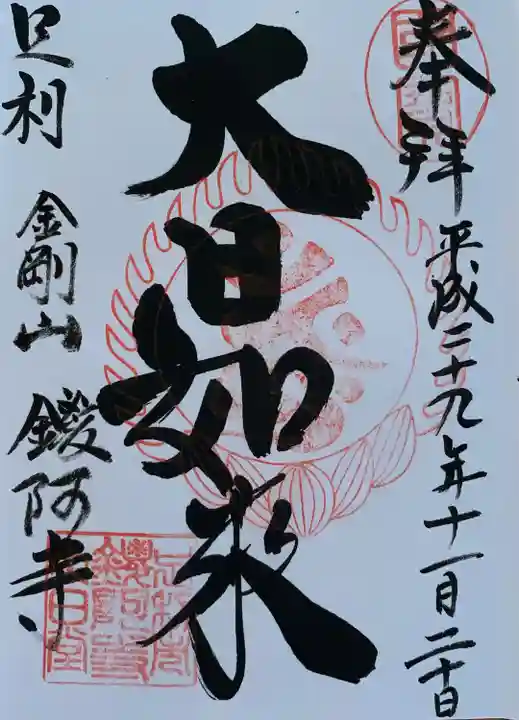 奉拝
平成二十九年十一月二十日
大日如来
足利 金剛山 鑁阿寺